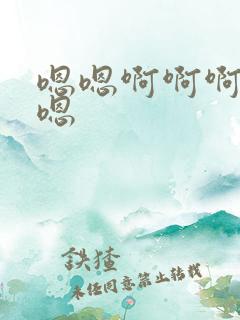 嗯嗯啊啊啊
嗯
未经同意禁止转载